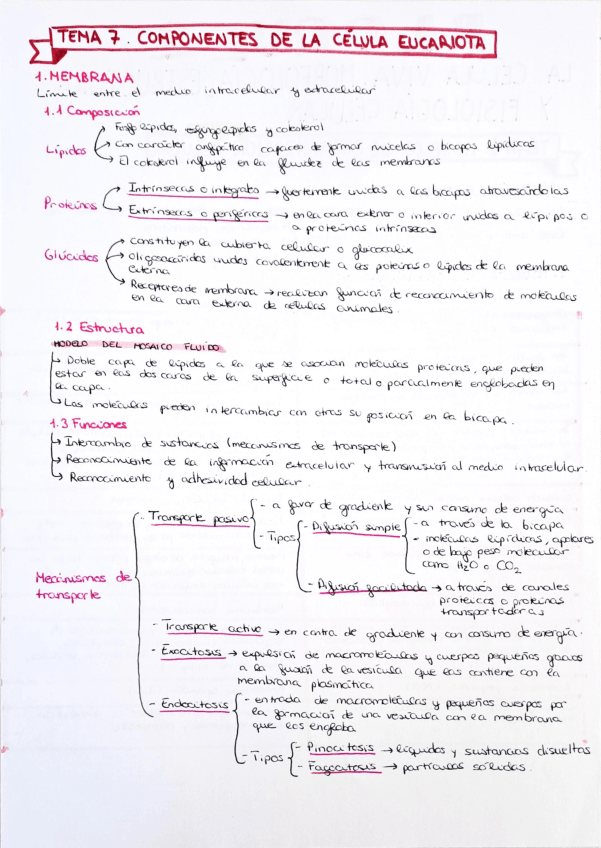 TEMA 7. COMPONENTES DE LA CÉLULA EUCARIOTA
1. MEMBRANA
Límite entre el medio intracelular y extracelular
1.1 Composición
Lípidos
Fosfolípidos, esfingolípidos y colesterol
Con carácter anfipático capaces de formar micelas o bicapas lipídicas
El colesterol influye en la fluidez de las membranas
Proteínas
Intrínsecas o integrales → fuertemente unidas a las bicapas atravesándolas
Extrínsecas o periféricas → en la cara exterior o interior unidas a lípidos o
a proteínas intrínsecas
Glúcidos
Constituyen la cubierta celular o glucocalix
Oligosacáridos unidos covalentemente a las proteínas o lípidos de la membrana
externa
Receptores de membrana → realizan función de reconocimiento de moléculas
en la cara externa de células animales.
1.2 Estructura
MODELO DEL MOSAICO FLUIDO
Doble capa de lípidos a la que se asocian moléculas proteicas, que pueden
estar en las dos caras de la superficie o total o parcialmente englobadas en
la capa.
Las moléculas pueden intercambiar con otras su posición en la bicapa.
1.3 Funciones
Intercambio de sustancias (mecanismos de transporte)
Reconocimiento de la información extracelular y transmisión al medio intracelular.
Reconocimiento y adhesividad celular.
Mecanismos de
transporte
- Transporte pasivo
- a favor de gradiente y sin consumo de energía
- Tipos
- Difusión simple
- a través de la bicapa
- moléculas lipídicas, apolares
o de bajo peso molecular
como H₂O o CO₂
- Difusión facilitada → a través de canales
proteicos o proteínas
transportadoras
- Transporte activo → en contra de gradiente y con consumo de energía.
- Exocitosis → expulsión de macromoléculas y cuerpos pequeños gracias
a la fusión de la vesícula que las contiene con la
membrana plasmática
- Endocitosis
- entrada de macromoléculas y pequeños cuerpos por
la formación de una vesícula con la membrana
que los engloba
- Tipos
- Pinocitosis → líquidos y sustancias disueltas
- Fagocitosis → partículas sólidas.